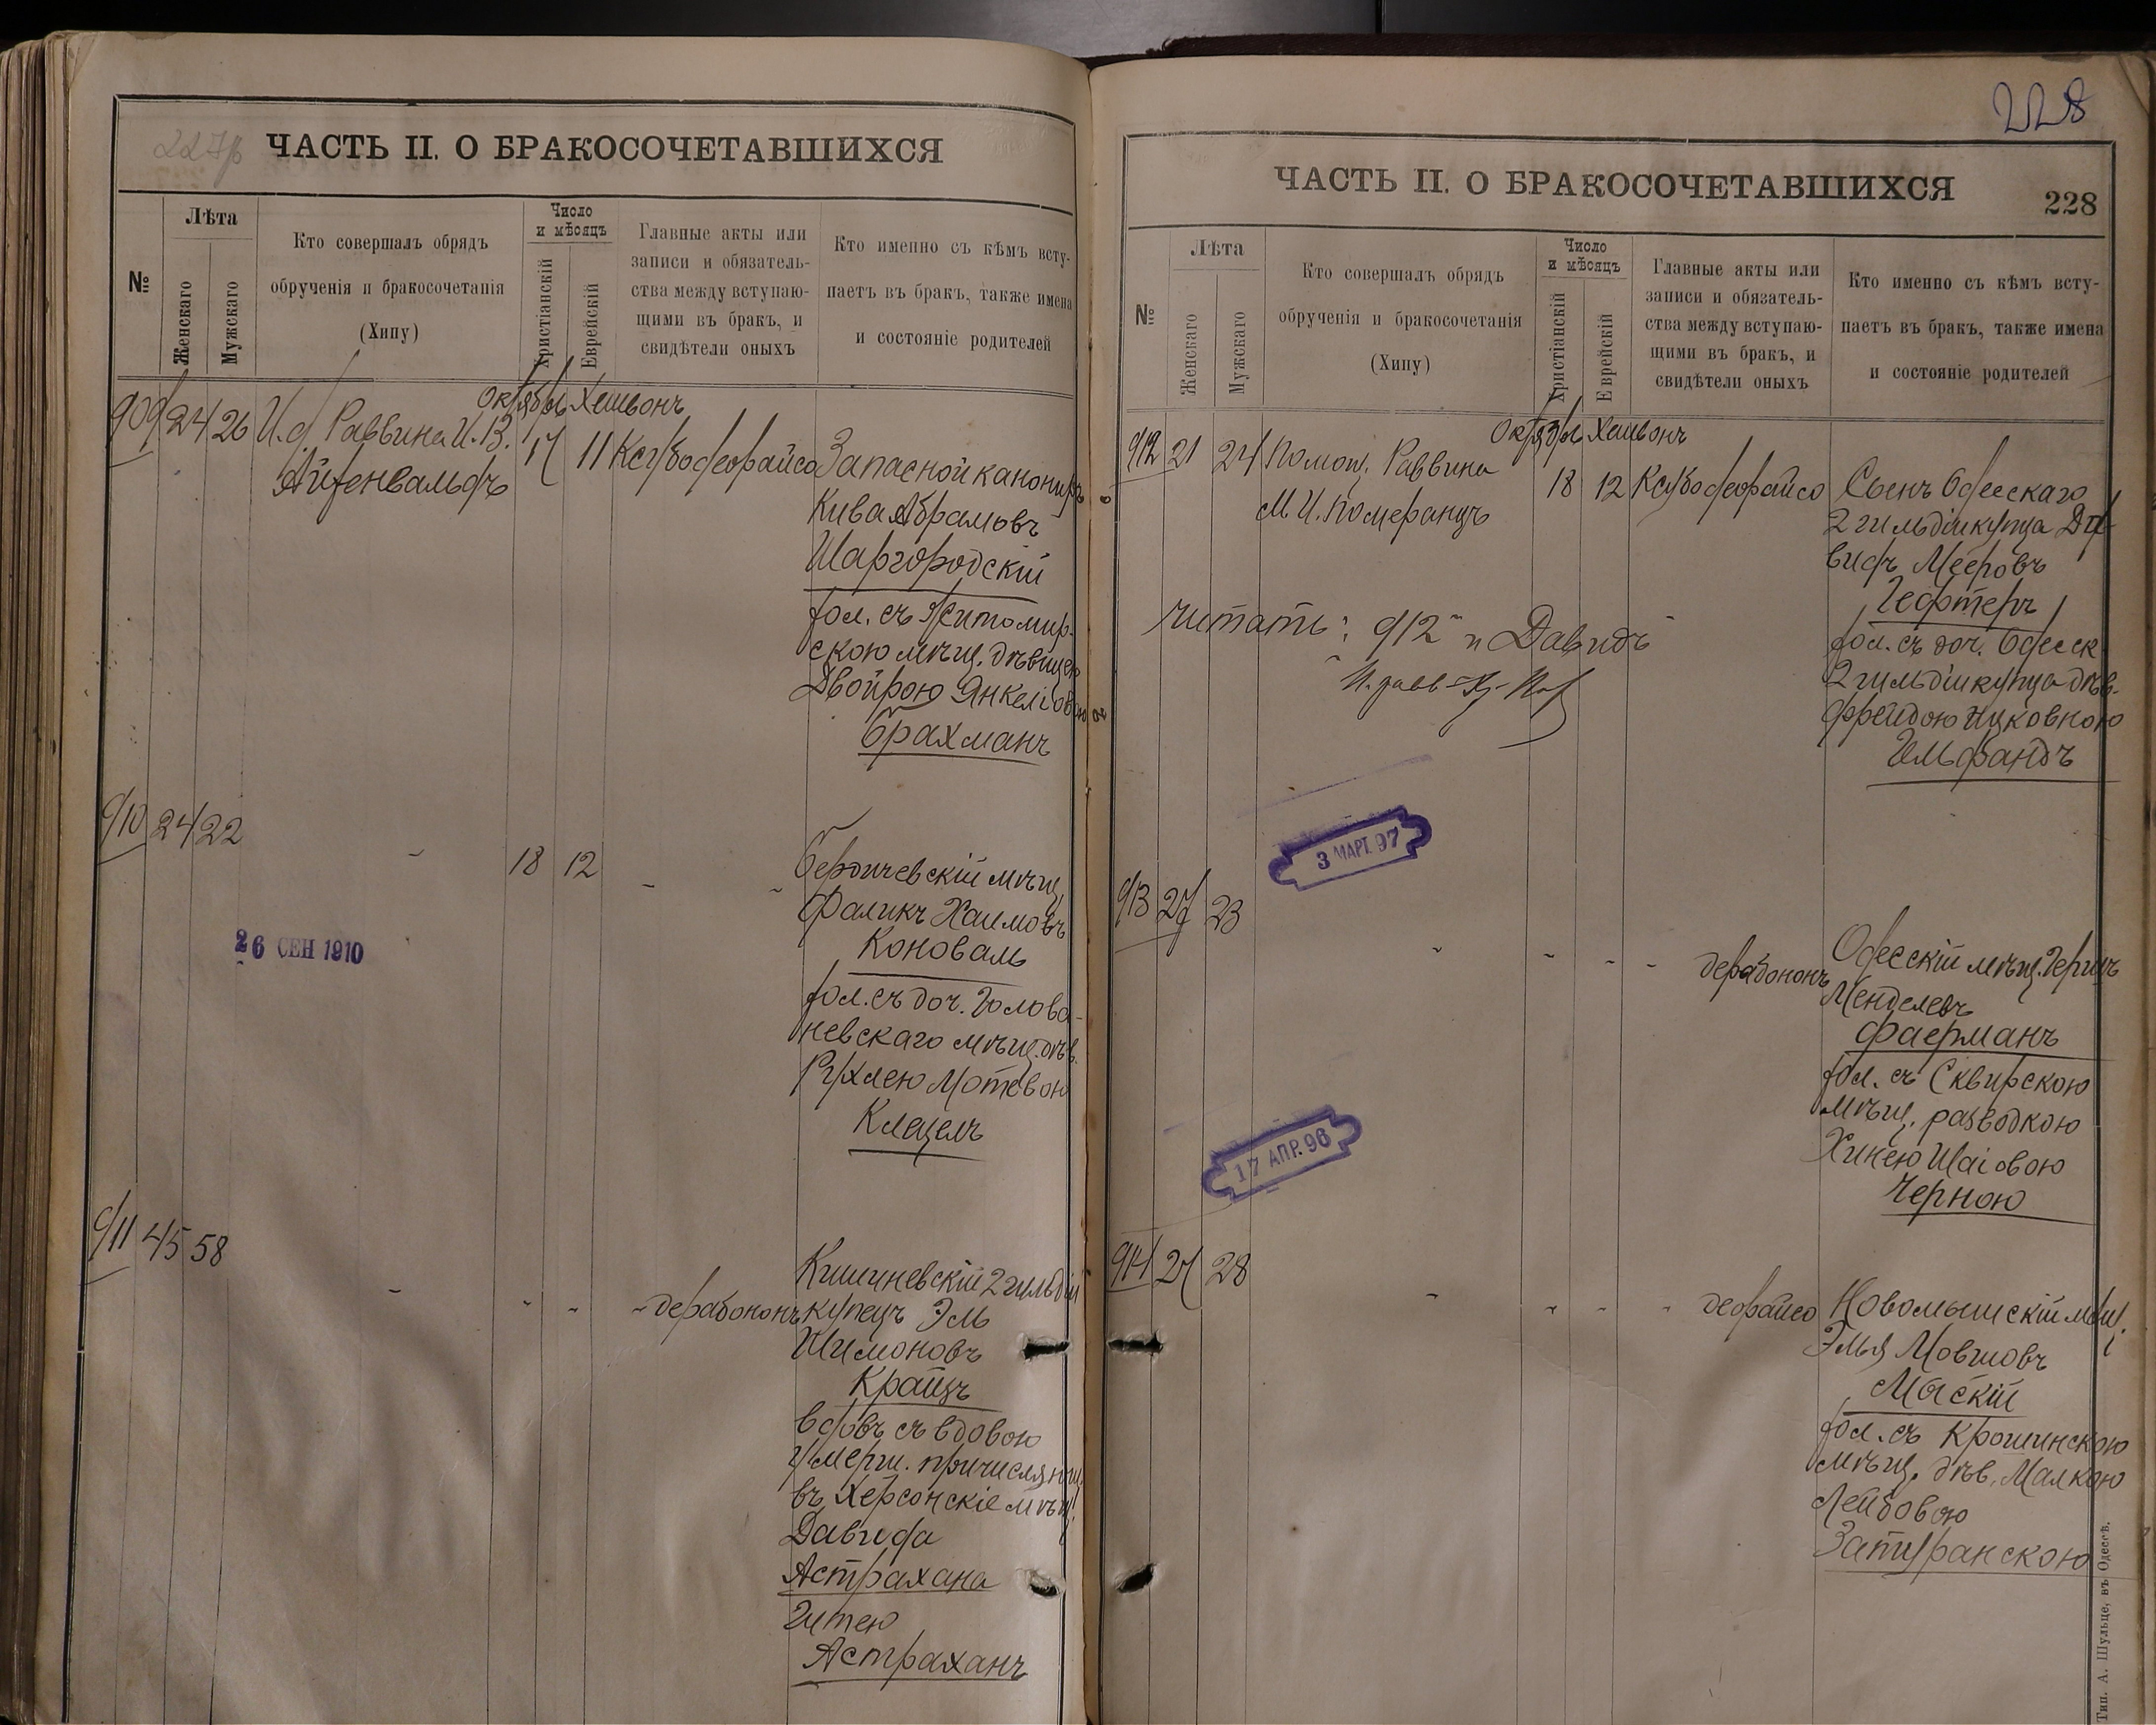 ЧАСТЬ II. О БРАКОСОЧЕТАВШИХСЯ
№
Лѣта
Женскаго
Мужскаго
Кто совершалъ обрядъ
обрученія и бракосочетанія
(Хипу)
Число
и мѣсяцъ
Христіанскій
Еврейскій
Главные акты или
записи и обязатель-
ства между вступаю-
щими въ бракъ, и
свидѣтели оныхъ
Кто именно съ кѣмъ всту-
паетъ въ бракъ, также имена
и состояніе родителей
Октябрь Хешвонъ
909 24 26 И. д. Раввина И. В. 17 11
Айзенвальдъ
Запасной канониръ
Кива Абрамовъ
Шаргородскій
хол. съ Житомир-
скою мѣщ. дѣвицею
Двойрою Янкеліовою
Брахманъ
910 24 22
18 12
Бердичевскій мѣщ.
Фаликъ Хаимовъ
Коновалъ
хол. съ доч. Голова-
невскаго мѣщ. дѣв.
Рухлею Мотевою
Клецелъ
26 СЕН 1910
911 45 58
дерабононъ
Кишиневскій 2 гильдіи
купецъ Эль
Шимоновъ
Крайзъ
вдовъ съ вдовою
умерш. причислянш.
въ Херсонскіе мѣщ.
Давида
Астрахана
Гитею
Астраханъ
228
ЧАСТЬ II. О БРАКОСОЧЕТАВШИХСЯ
228
№
Лѣта
Женскаго
Мужскаго
Кто совершалъ обрядъ
обрученія и бракосочетанія
(Хипу)
Число
и мѣсяцъ
Христіанскій
Еврейскій
Главные акты или
записи и обязатель-
ства между вступаю-
щими въ бракъ, и
свидѣтели оныхъ
Кто именно съ кѣмъ всту-
паетъ въ бракъ, также имена
и состояніе родителей
Октябрь Хешвонъ
912 21 24 Помощ. Раввина 18 12
М. И. Померанцъ
Сынъ Одесскаго
2 гильдіи купца Да-
видъ Мееровъ
Гефтеръ
хол. съ доч. Одесск.
2 гильдіи купца дѣв.
Фрейдою Ицковною
Гельфандъ
Читать: "912" и "Давидъ"
3 МАРТ. 97
913 27 23
дерабононъ
Одесскій мѣщ. Гершъ
Менделевъ
Фаерманъ
хол. съ Сквирскою
мѣщ. разводкою
Хинею Шаіовою
Черною
17 АПР. 96
914 24 28
деорайсо
Новомышскій мѣщ.
Элья Мовшовъ
Мыскій
хол. съ Крошинскою
мѣщ. дѣв. Малкою
Лейбовою
Затуранскою
Тип. А. Шульце, въ Одессѣ.